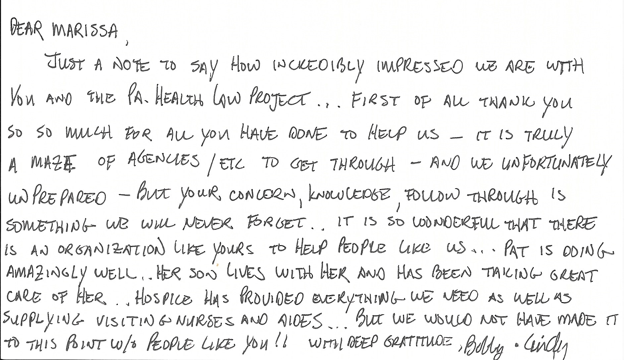 DEAR MARISSA,
JUST A NOTE TO SAY HOW INCREDIBLY IMPRESSED WE ARE WITH
YOU AND THE PA. HEALTH LAW PROJECT... FIRST OF ALL THANK YOU
SO SO MUCH FOR ALL YOU HAVE DONE TO HELP US – IT IS TRULY
A MAZE OF AGENCIES/ETC TO GET THROUGH – AND WE UNFORTUNATELY
UNPREPARED – BUT YOUR CONCERN, KNOWLEDGE, FOLLOW THROUGH IS
SOMETHING WE WILL NEVER FORGET.. IT IS SO WONDERFUL THAT THERE
IS AN ORGANIZATION LIKE YOURS TO HELP PEOPLE LIKE US... PAT IS DOING
AMAZINGLY WELL.. HER SON LIVES WITH HER AND HAS BEEN TAKING GREAT
CARE OF HER... HOSPICE HAS PROVIDED EVERYTHING WE NEED AS WELL AS
SUPPLYING VISITING NURSES AND AIDES... BUT WE WOULD NOT HAVE MADE IT
TO THIS POINT W/O PEOPLE LIKE YOU!! WITH DEEP GRATITUDE, Bobby · Cindy